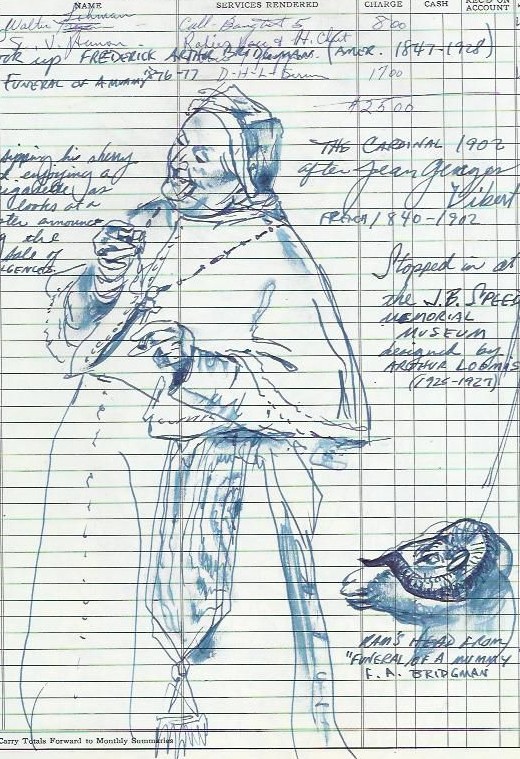 NAME SERVICES RENDERED CHARGE CASH REC'D ON ACCOUNT
Walter Lehman Call- 8 00
S. V. H. Clot
OOK up FREDERICK ARTHUR BRIDGEMANS. (AMER. 1847-1928)
FUNERAL OF A MUMMY 1876-77 D-H-L- 17 00
$25 00
sipping his sherry
& enjoying a
cigarette as
looks at a
announce
g the
Sale of
LGENCES
THE CARDINAL 1902
after Jean Georges
Vibert
FRENCH 1840-1902
Stopped in at
the J.B. SPEED
MEMORIAL
MUSEUM
designed by
ARTHUR LOOMIS
(1925-1927)
RAM'S HEAD FROM
"FUNERAL OF A MUMMY
F. A. BRIDGMAN
Carry Totals Forward to Monthly Summaries